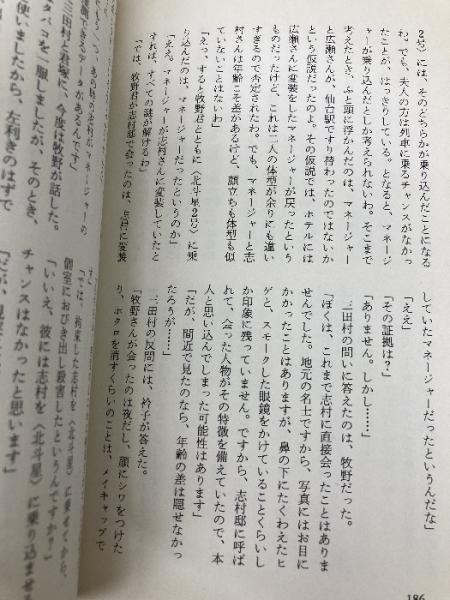 2号〉には、そのどちらかが乗り込んだことになる
わ。でも、夫人の方は列車に乗るチャンスがなかっ
たことが、はっきりしている。となると、マネージ
ャーが乗り込んだとしか考えられないわ。そこまで
考えたとき、ふと頭に浮かんだのは、マネージャー
と広瀬さんが、仙台駅ですり替わったのではないか
という仮説だったのよ。その仮説では、ホテルには
広瀬さんに変装をしたマネージャーが戻ったという
ものだったけど、これは二人の体型が余りにも違い
すぎるので否定されたわ。でも、マネージャーと志
村さんは年齢こそ差があるけど、顔立ちも体型も似
ていないことはないわ」
「えっ、すると牧野君とともに〈北斗星2号〉に乗
り込んだのは、マネージャーだったというのか」
「ええ。マネージャーが志村さんに変装していたと
すれば、すべての謎が解けるわ」
「では、牧野君が志村邸で会ったのは、志村に変装
していたマネージャーだったというんだな」
「ええ」
「その証拠は?」
「ありません。しかし……」
三田村の問いに答えたのは、牧野だった。
「ぼくは、これまで志村に直接会ったことはありま
せんでした。地元の名士ですから、写真にはお目に
かかったことはありますが、鼻の下にたくわえたヒ
ゲと、スモークした眼鏡をかけていることくらいし
か印象に残っていません。ですから、志村邸に呼ば
れて、会った人物がその特徴を備えていたので、本
人と思い込んでしまった可能性はあります」
「だが、間近で見たのなら、年齢の差は隠せなかっ
ただろうが……」
三田村の反問には、衿子が答えた。
「牧野さんが会ったのは夜だし、顔にシワをつけた
り、ホクロを消すくらいのことは、メイキャップで
186
「では、拘束した志村を〈北斗星〉に乗せてから、
個室におびき出し殺害したというんですか?」
「いいえ、彼には志村を〈北斗星〉に乗り込ませる
チャンスはなかったと思います」
三田村と君塚に、今度は牧野が話した。
タバコを一服しましたが、そのとき、
使いましたから、左利きのはずで